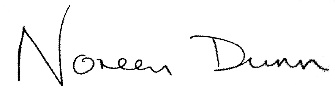 Noreen Dunn